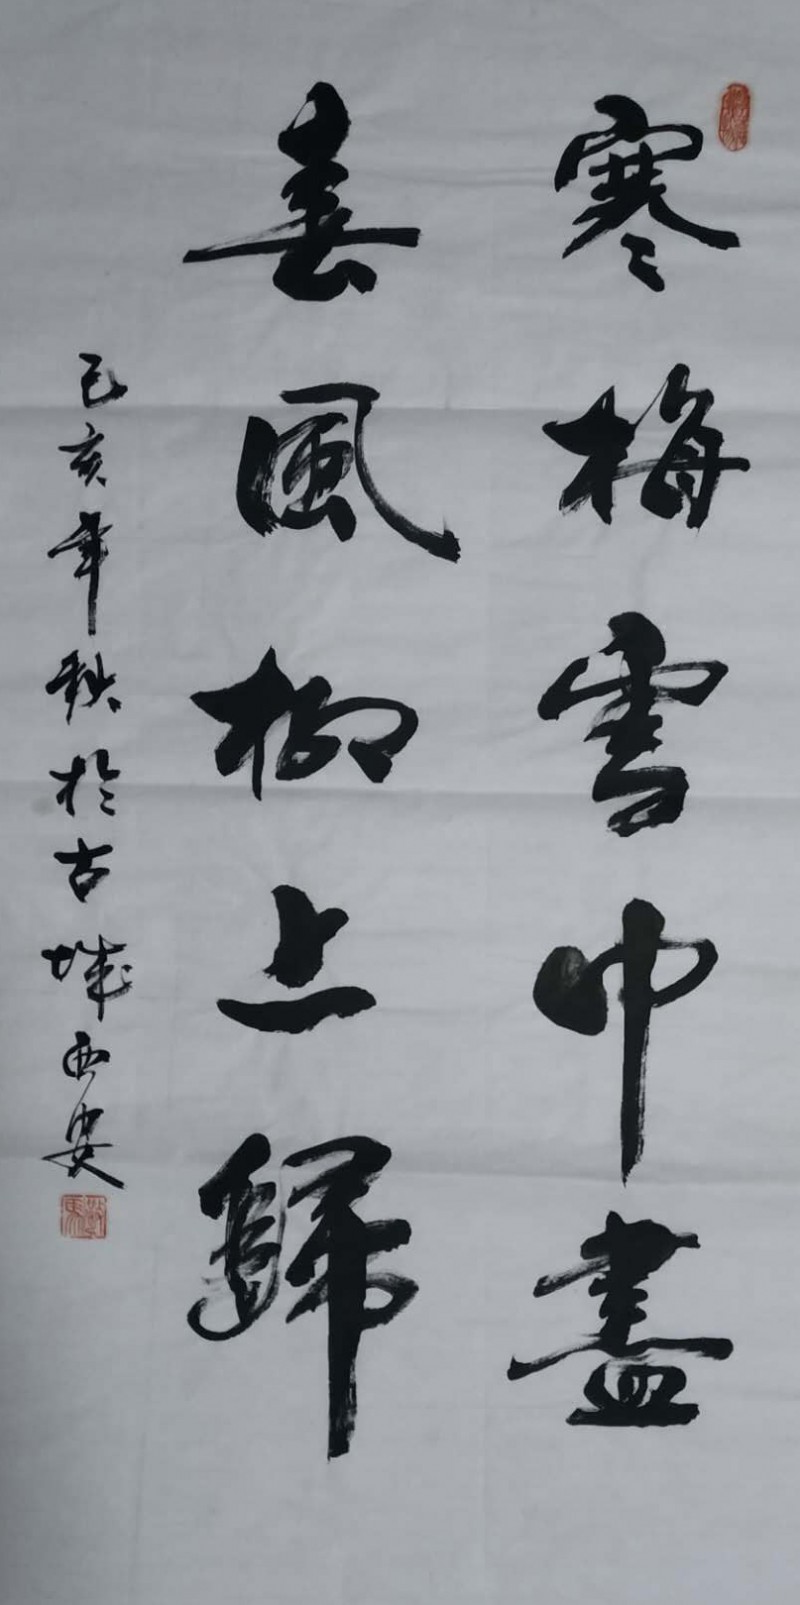 寒梅雪中盡
春風柳上歸
己亥年秋於古城西安